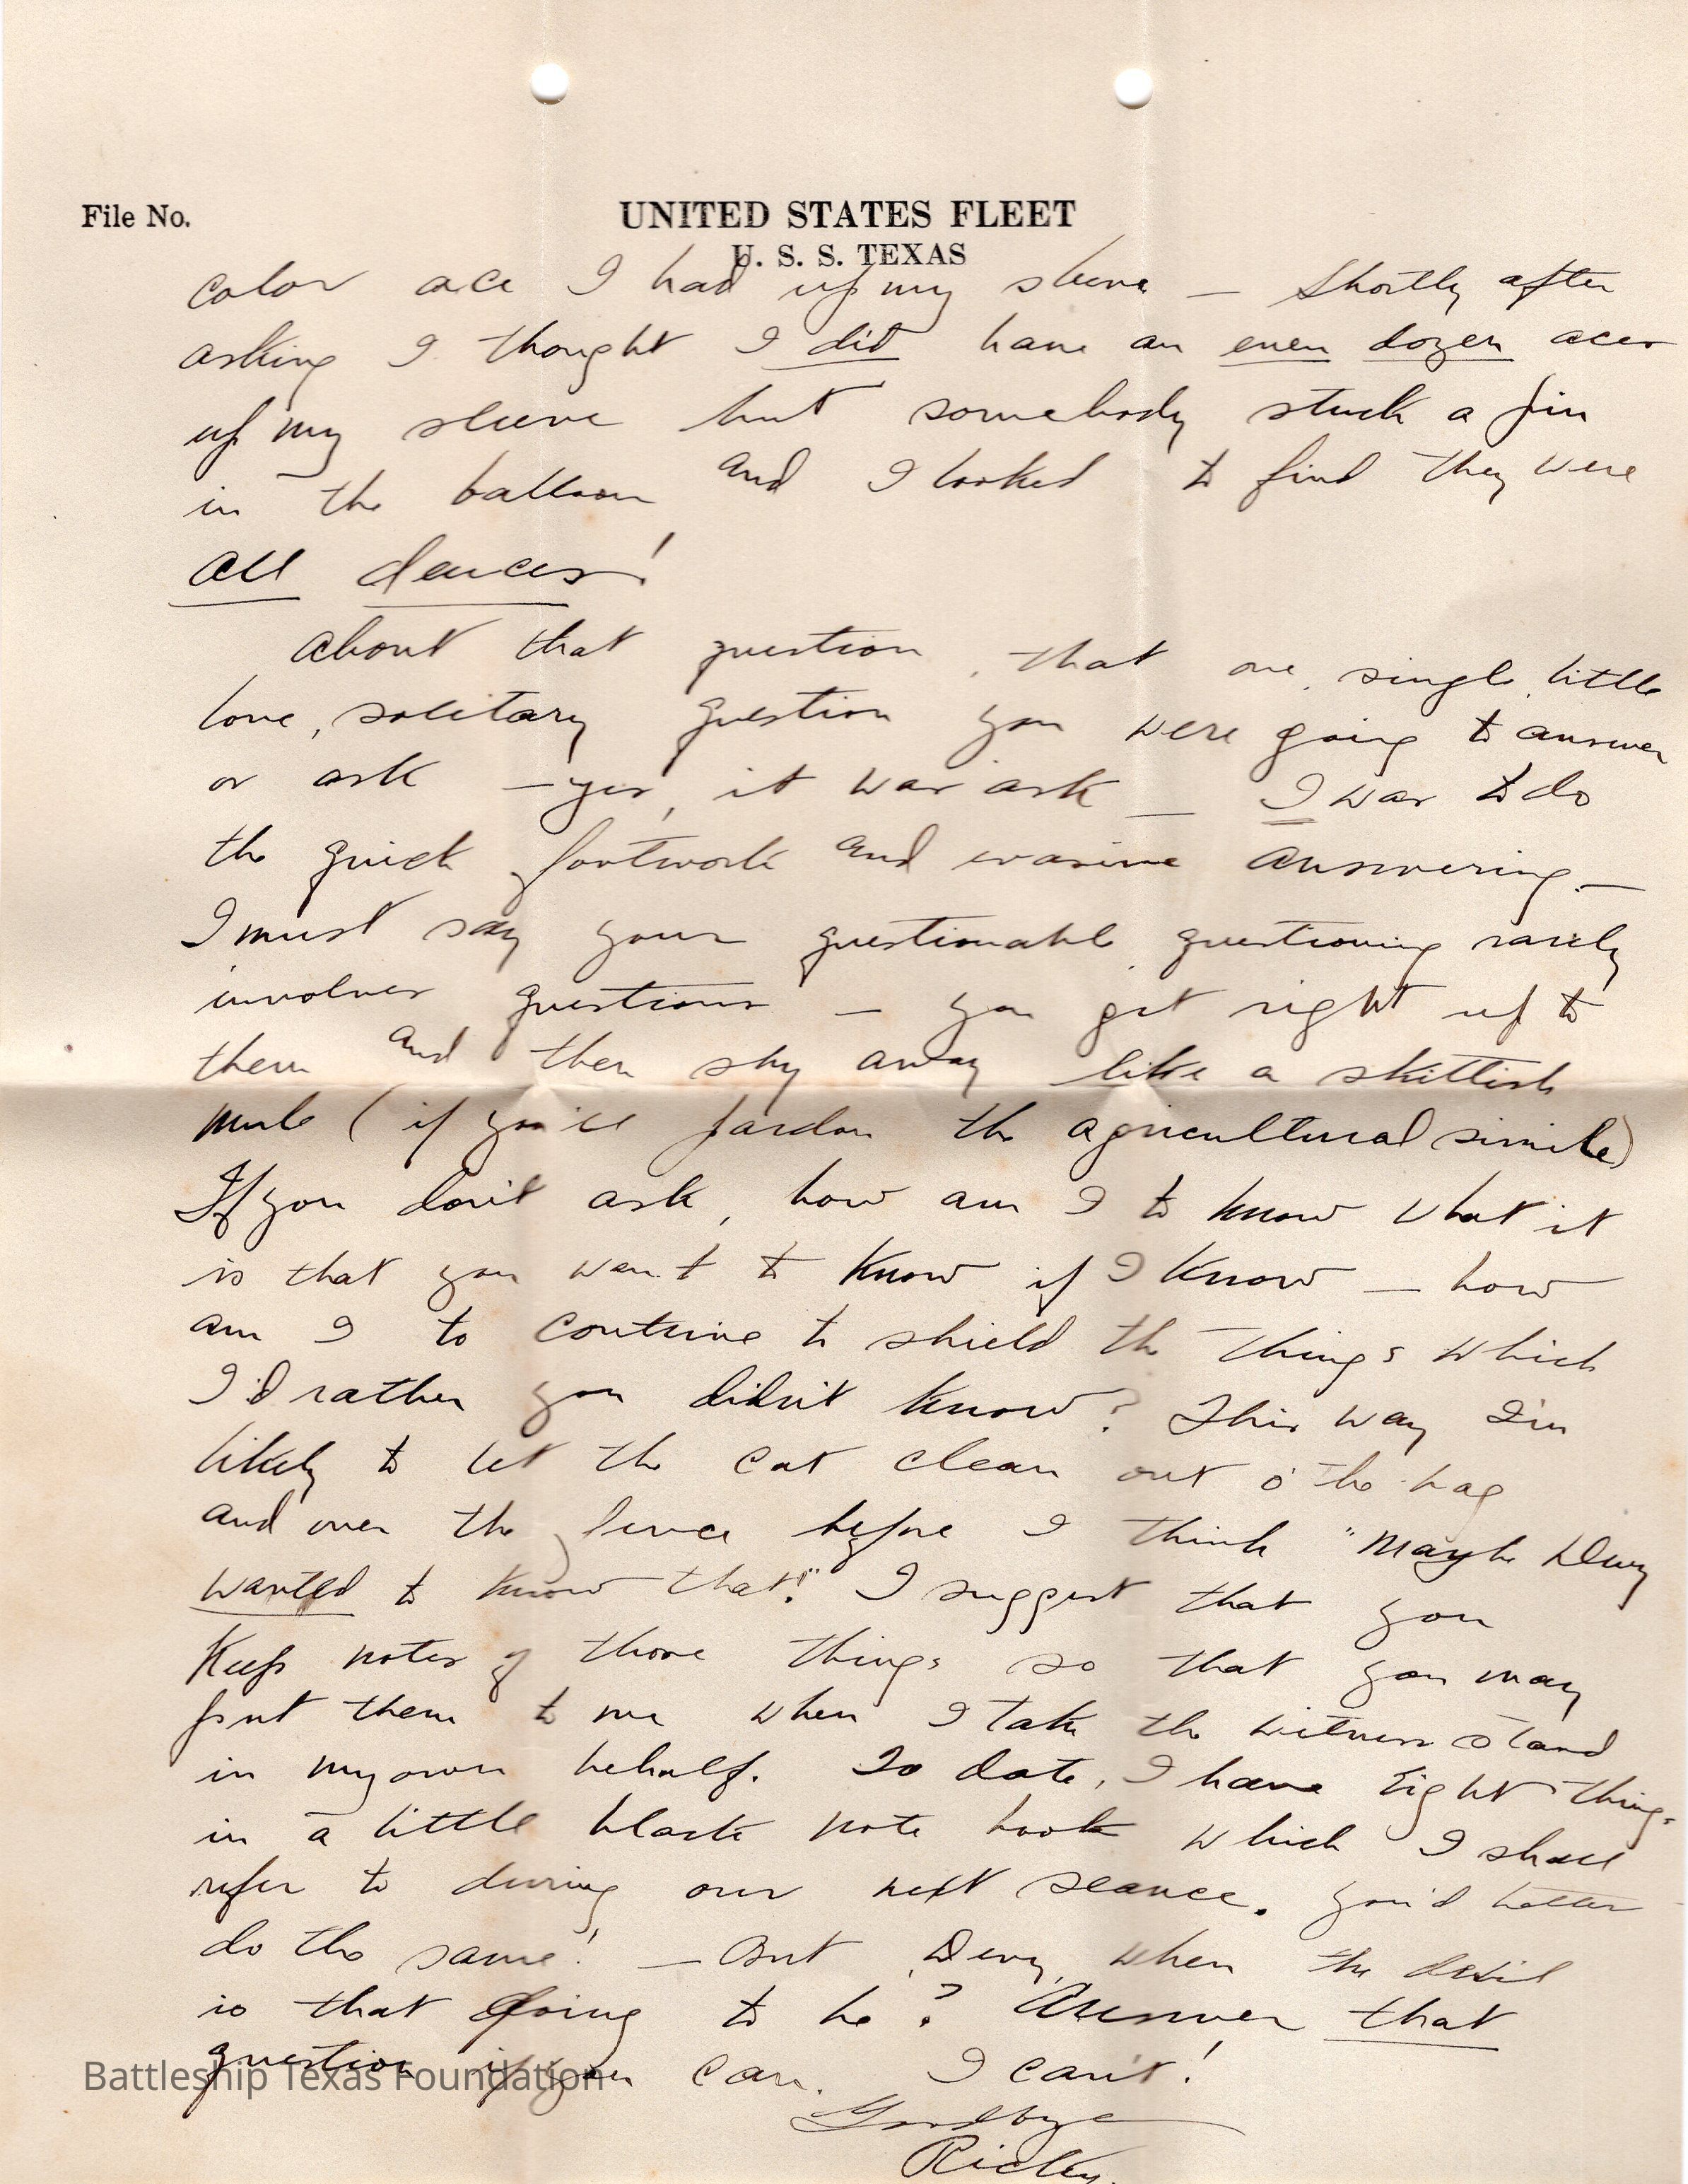 File No.
UNITED STATES FLEET
U. S. S. TEXAS
color ace I had up my sleeve — Shortly after
asking I thought I did have an even dozen aces
up my sleeve but somebody stuck a pin
in the balloon and I looked to find they were
all deuces!
About that question, that one, single, little
lone, solitary question you were going to answer
or ask — yes, it was ask — I was to do
the quick footwork and evasive answering. —
I must say your questionable questioning rarely
involves questions — you get right up to
them and then shy away like a skittish
mule (if you'll pardon the agricultural simile)
If you don't ask, how am I to know what it
is that you want to know if I know — how
am I to contrive to shield the things which
I'd rather you didn't know? This way I'm
likely to let the cat clean out o' the bag
and over the fence before I think "Maybe Dewy
wanted to know that!" I suggest that you
keep notes of those things so that you may
put them to me when I take the witness stand
in my own behalf. To date, I have eight things
in a little black note book which I shall
refer to during our next seance. You'd better
do the same! — But Dewy, when the devil
is that going to be? Answer that
question if you can. I can't!
Goodbye
Ricky.
Battleship Texas Foundation